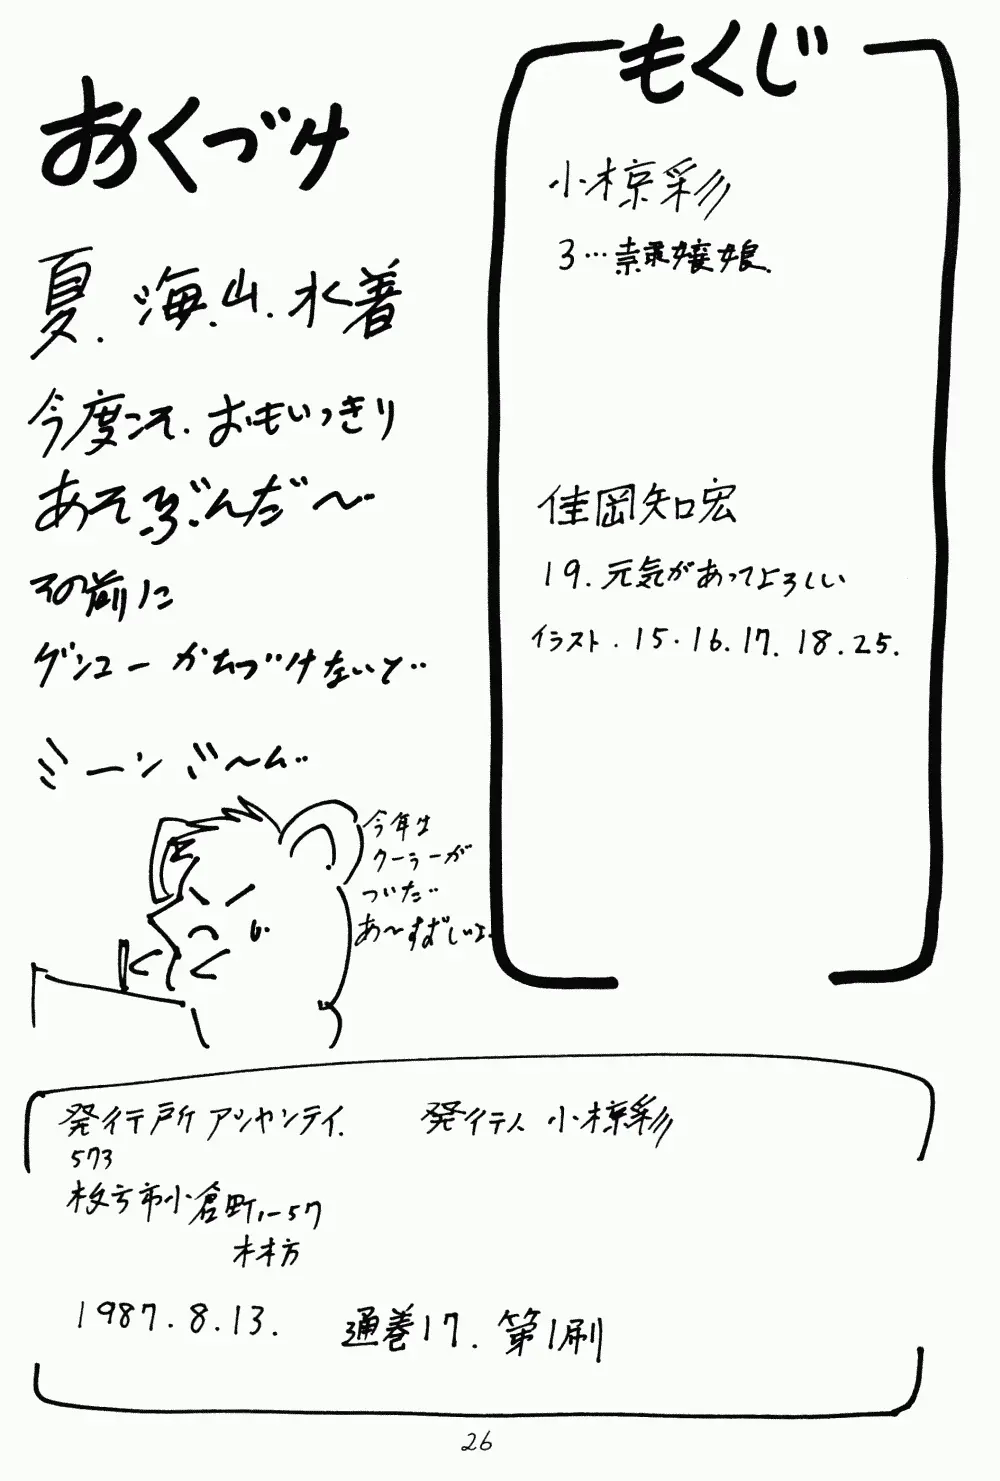 おくづけ
夏.海.山.水着
今度こそ.おもいっきり
あそぶんだ〜
その前に
ゲンコーかたづけないと..
ミーンミ〜ム..
今年は
クーラーが
ついた..
あ〜すずしいよ.
もくじ
小椋彩
3…隷嬢娘.
佳岡知宏
19.元気があってよろしい
イラスト.15.16.17.18.25.
発行所 アシャンティ. 発行人 小椋彩
573
枚方市小倉町1-57
林方
1987.8.13. 通巻17.第1刷
26